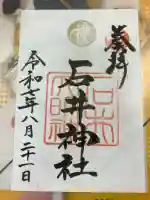 奉拝
石井神社
令和七年八月二十一日